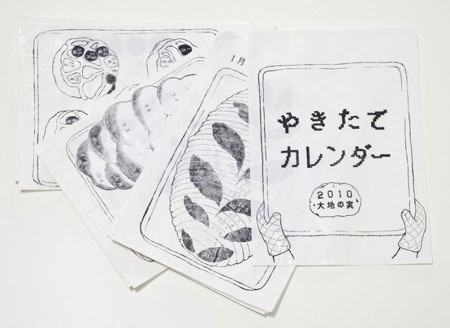 1月
やきたて
カレンダー
2010
大地の実